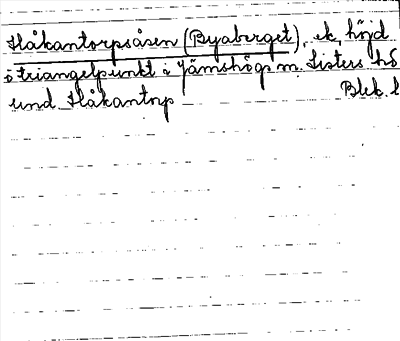 Håkantorpsåsen (Byaberget), ek, höjd
o triangelpunkt i Jämshögs sn. Listers hd
und. Håkantorp Blek. l